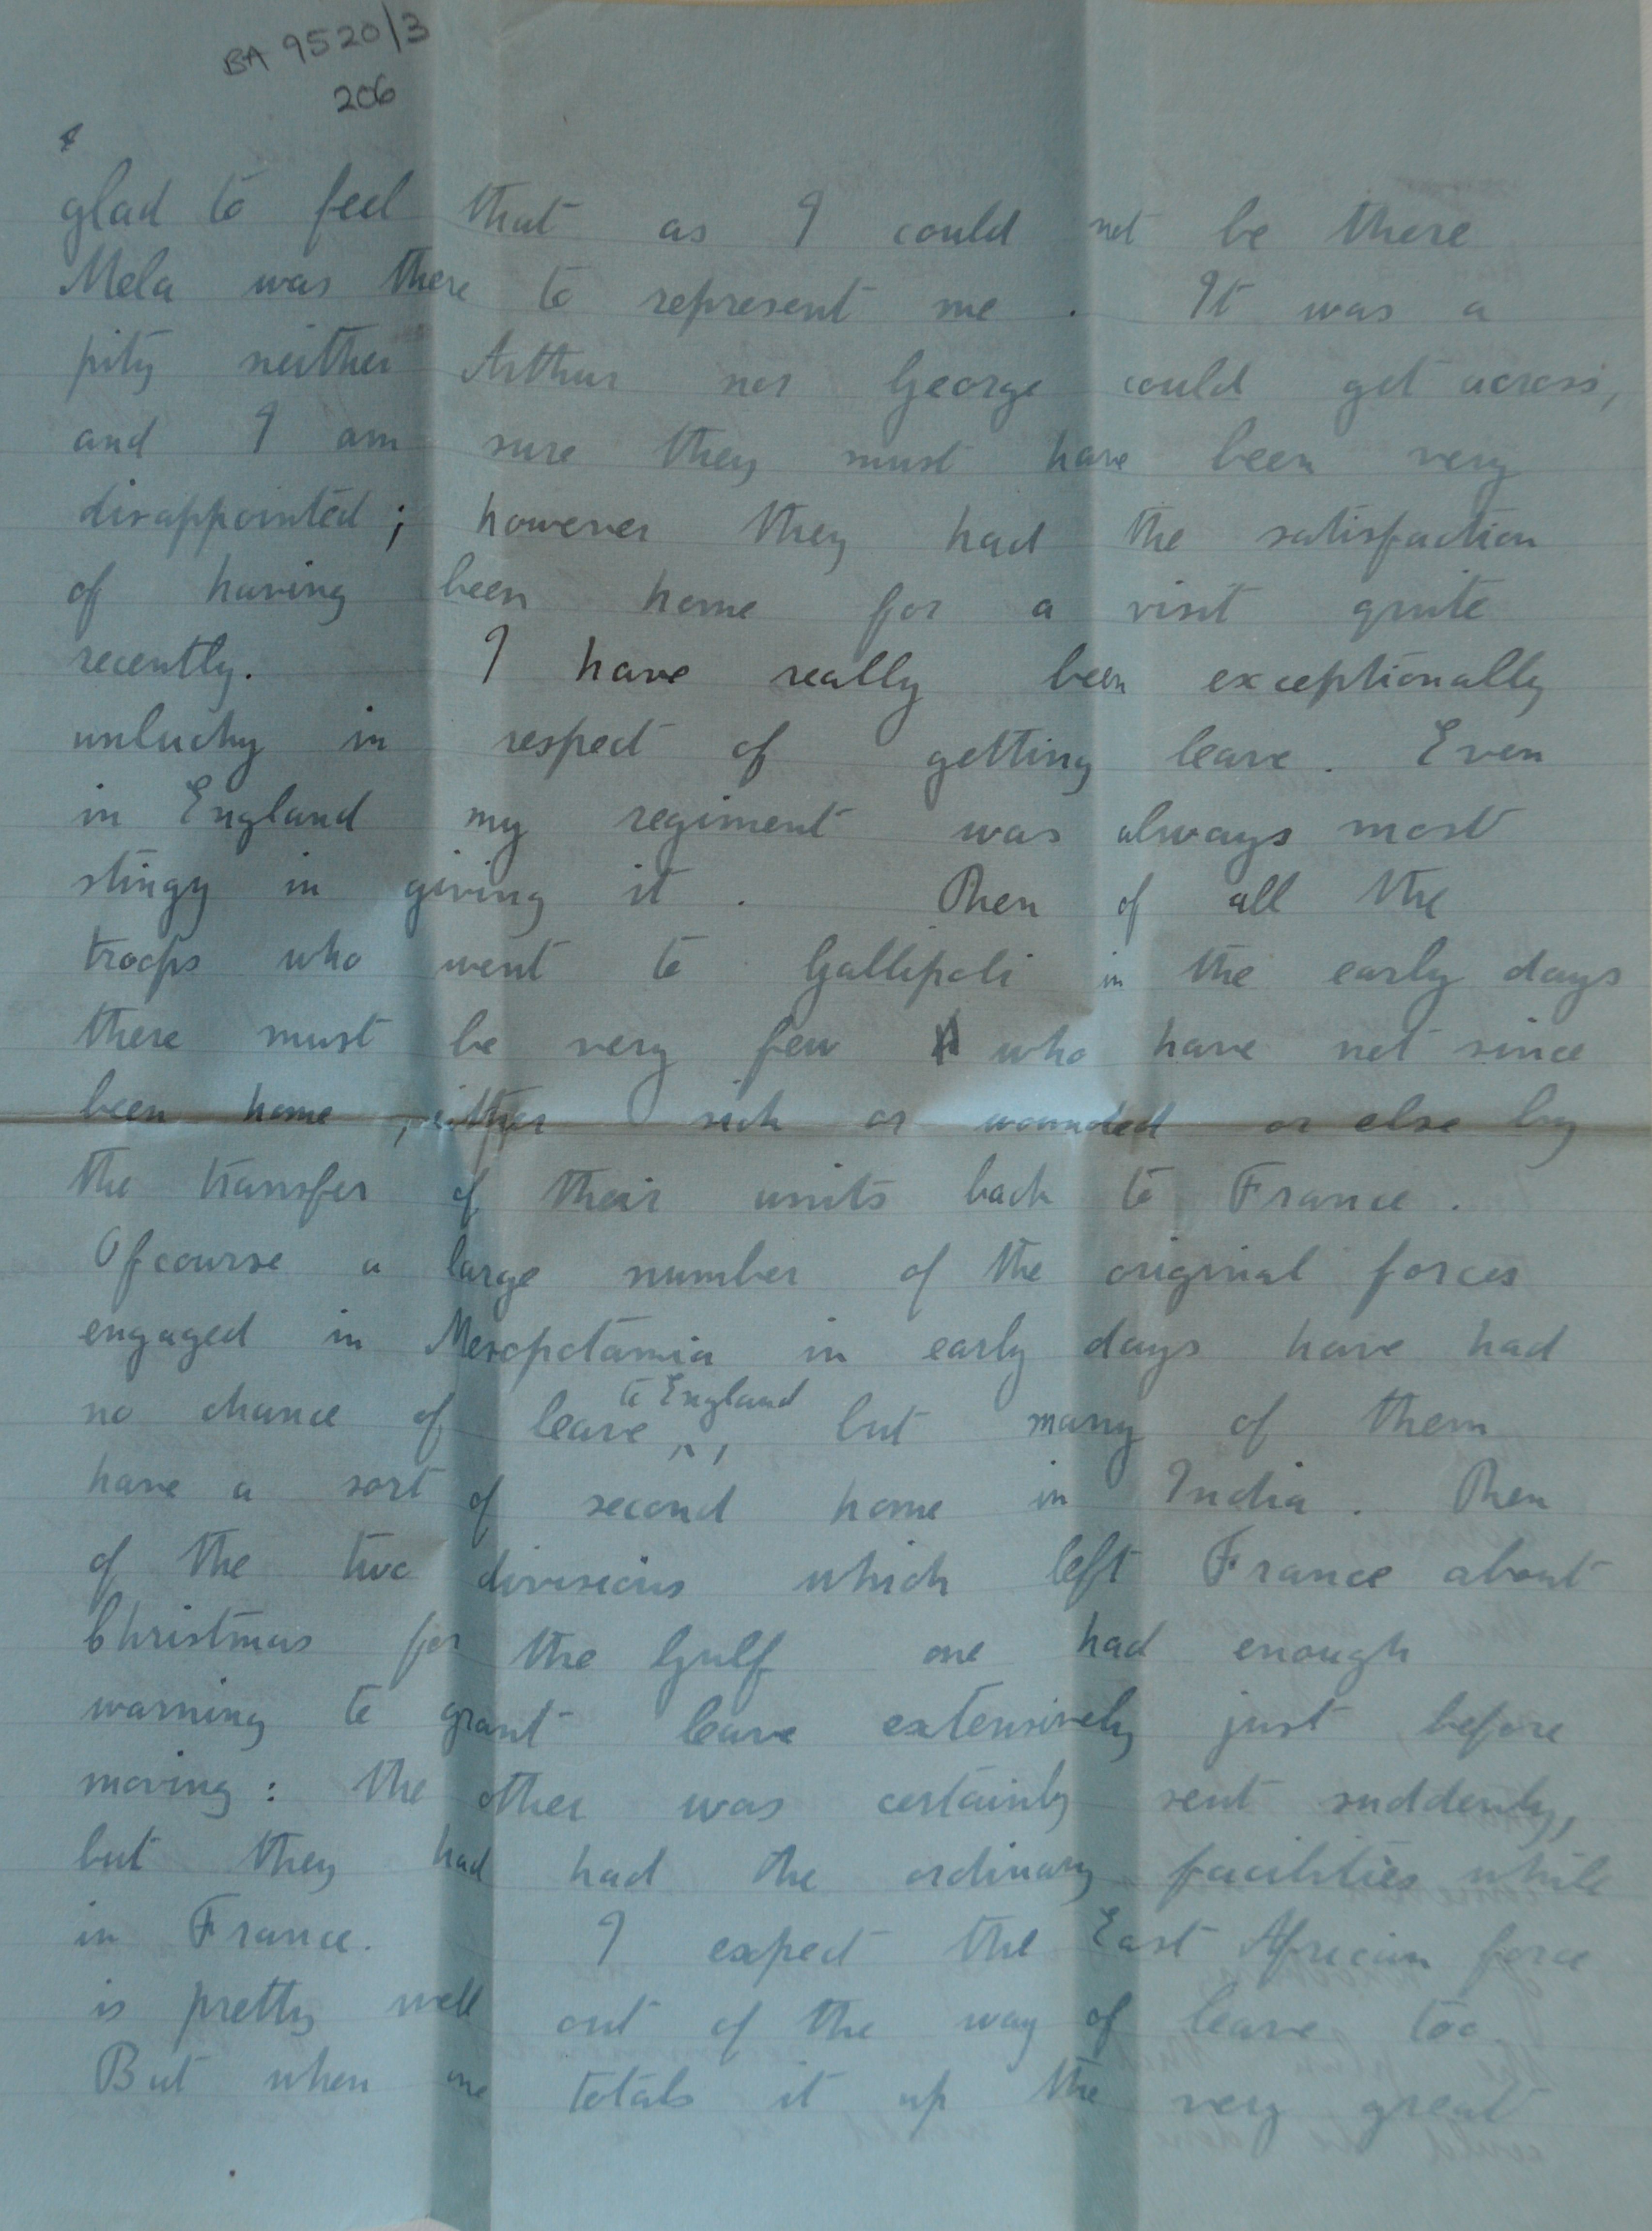 BA 9520/3
206
glad to feel that as I could not be there
Mela was there to represent me. It was a
pity neither Arthur nor George could get across,
and I am sure they must have been very
disappointed; however they had the satisfaction
of having been home for a visit quite
recently. I have really been exceptionally
unlucky in respect of getting leave. Even
in England my regiment was always most
stingy in giving it. Then of all the
troops who went to Gallipoli in the early days
there must be very few who have not since
been home, either sick or wounded or else by
the transfer of their units back to France.
Ofcourse a large number of the original forces
engaged in Mesopotamia in early days have had
to England
no chance of leave, but many of them
have a sort of second home in India. Then
of the two divisions which left France about
Christmas for the Gulf one had enough
warning to grant leave extensively just before
moving: the other was certainly sent suddenly,
but they had had the ordinary facilities while
in France. I expect the East African force
is pretty well out of the way of leave too.
But when one totals it up the very great